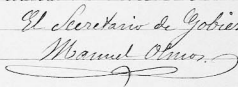 El Secretario de Gobier
Manuel Olmos.